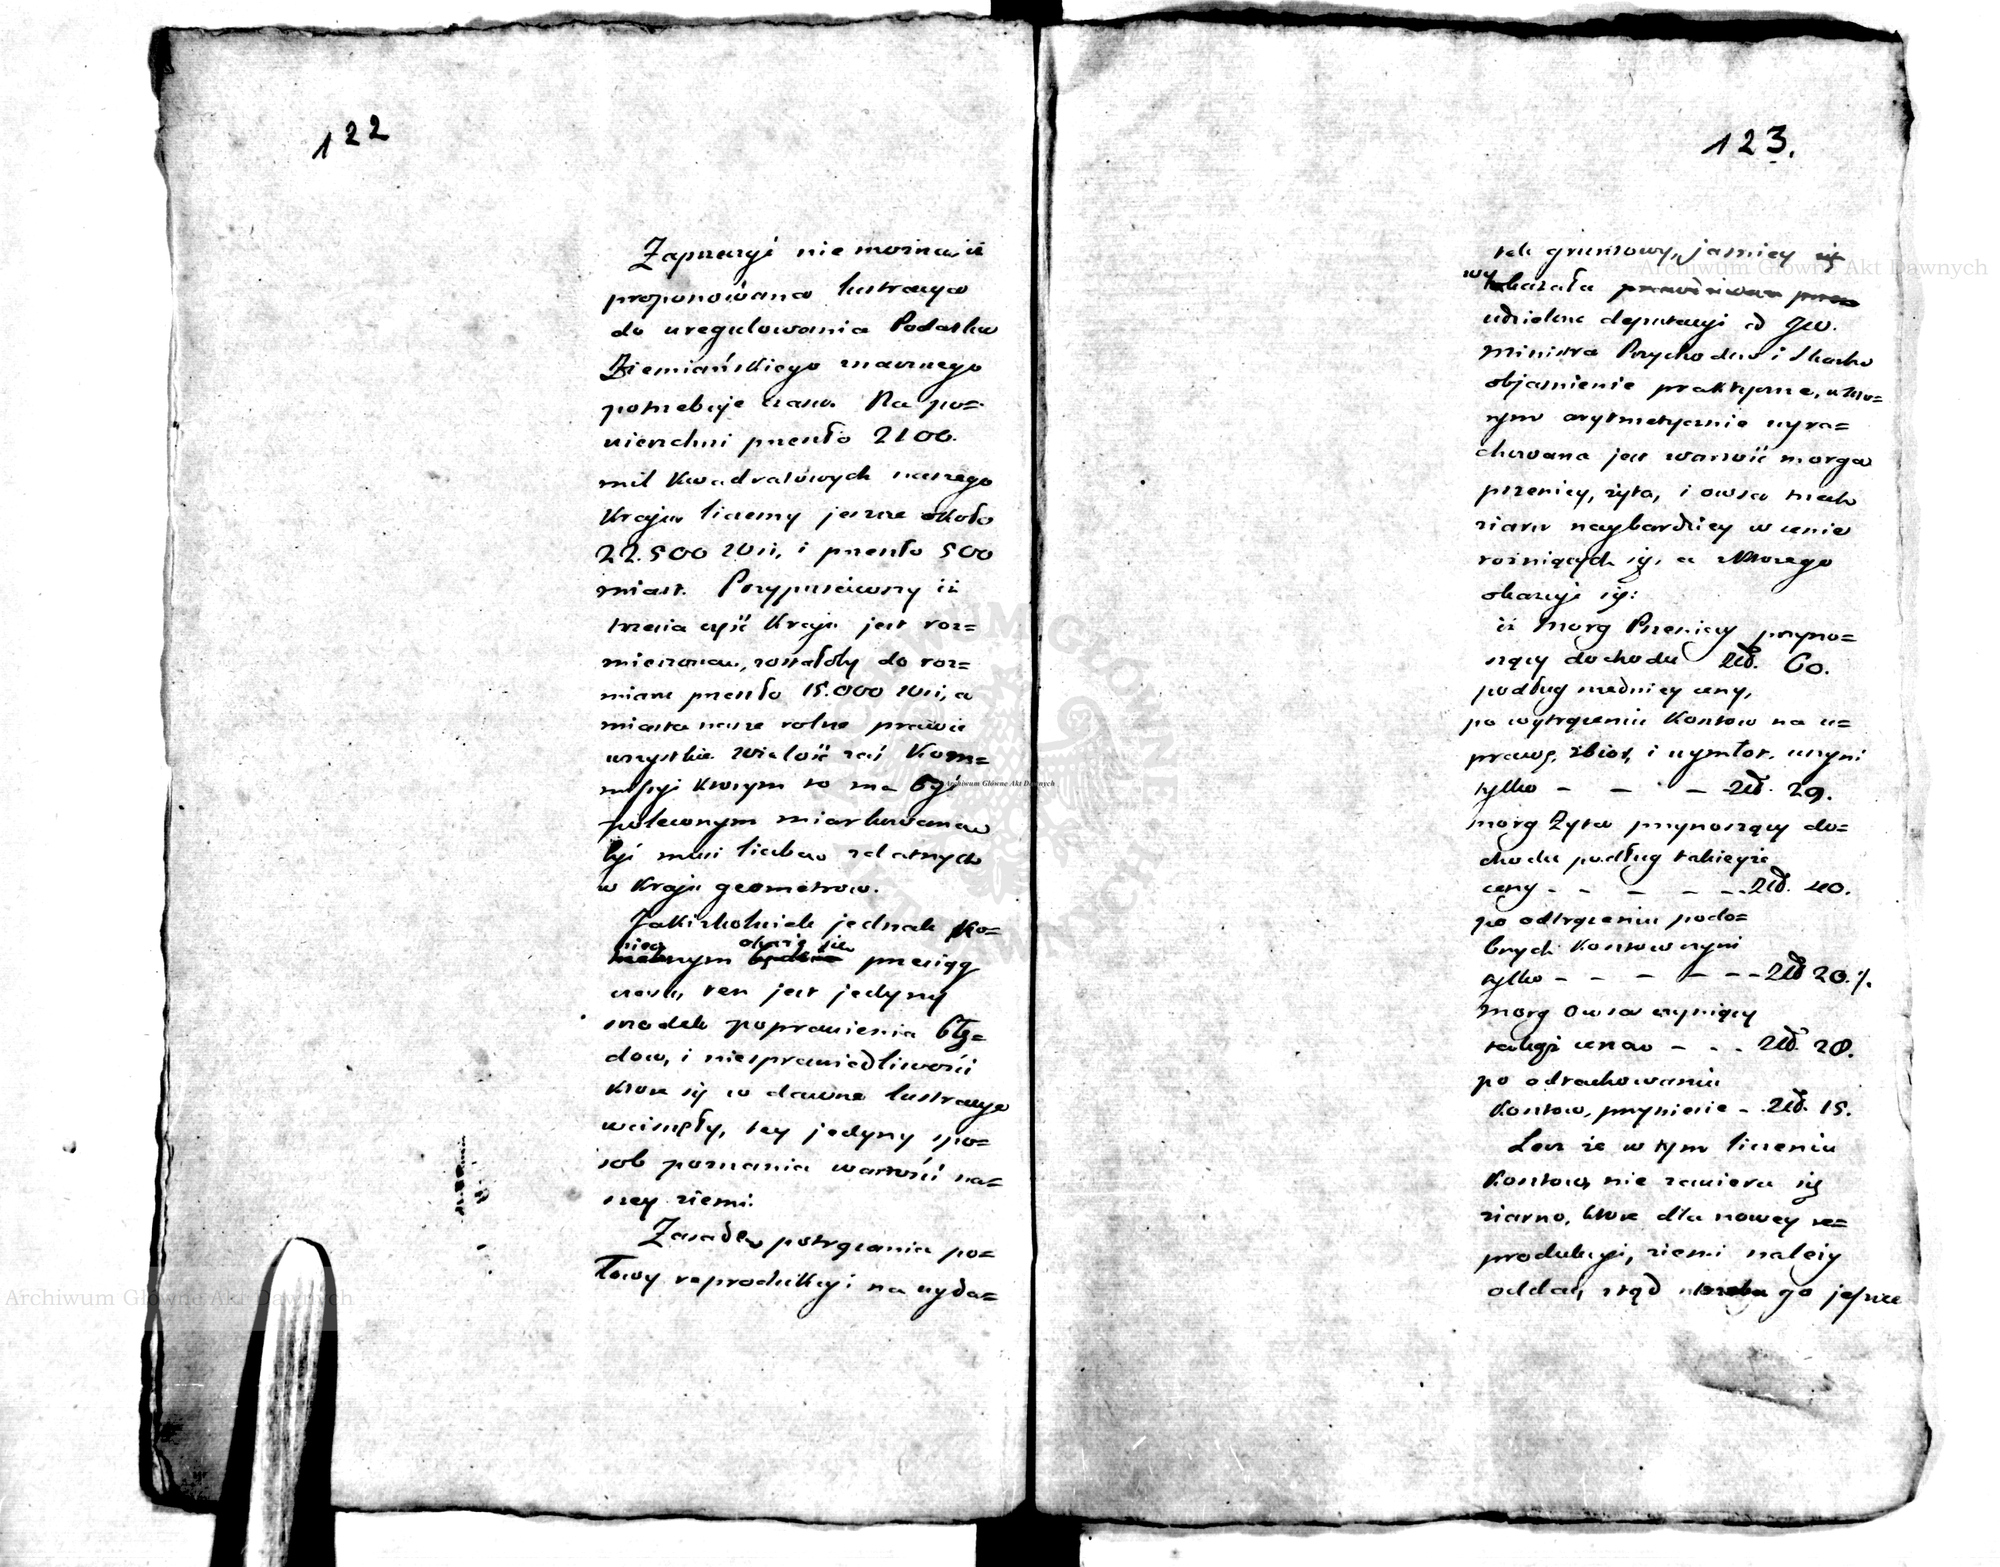 122
Zaprzeczyć nie można iż
proponowana lustracya
do uregulowania Podatku
Ziemiańskiego znacznego
potrzebuje czasu. Na po=
wierzchni przeszło 2100.
mil kwadratowych naszego
Kraju liczemy jeszcze około
22.500 wsi, i przeszło 500
miast. Przypuściwszy iż
trzecia część Kraju jest roz=
mierzona, zostałoby do roz=
miaru przeszło 15.000 wsi, a
miasta nasze rolne prawie
wszystkie. Wielość zaś Kom=
missyi którym to ma być
poleconym miarkowana
być musi liczbą zdatnych
w Kraju geometrow.
Jakiżkolwiek jednak ko=
niecznym okaże się przeciąg
czasu, ten jest jedyny
srodek poprawienia błę=
dow, i niesprawiedliwości
które się w dawne lustracye
wcisnęły, ten jedyny spo=
sob poznania wartości na=
szey ziemi.
Zasadę potrącania po=
łowy reprodukcyi na wyda=
123.
tek gruntowy, jaśniey
wykazała
udzielone deputacyi od JW.
Ministra Przychodow i Skarbu
objaśnienie praktyczne, w któ=
rym arytmetycznie wyra=
chowana jest wartość morga
pszenicy, żyta, i owsa trzech
ziarn naybardziey w cenie
rożniących się, z którego
okazuje się:
iż Morg Pszenicy przyno=
szący dochodu Złł. 60.
podług średniey ceny,
po wytrąceniu kosztow na u=
prawę, zbior, i wymłot, czyni
tylko - - - Złł. 29.
morg Zyta przynoszący do=
chodu podług takieyże
ceny - - - - - Złł. 40.
po odtrąceniu podo=
bnych kosztow czyni
tylko - - - - - - Złł 20.
morg Owsa czyniący
takąż ceną - - - Złł. 28.
po odrachowaniu
kosztow, przyniesie - Złł. 15.
Lecz że w tym liczeniu
kosztow, nie zawiera się
ziarno, które dla nowey re=
produkcyi, ziemi należy
oddać, ztąd go jeszcze
Archiwum Główne Akt Dawnych
Archiwum Główne Akt Dawnych
Archiwum Główne Akt Dawnych